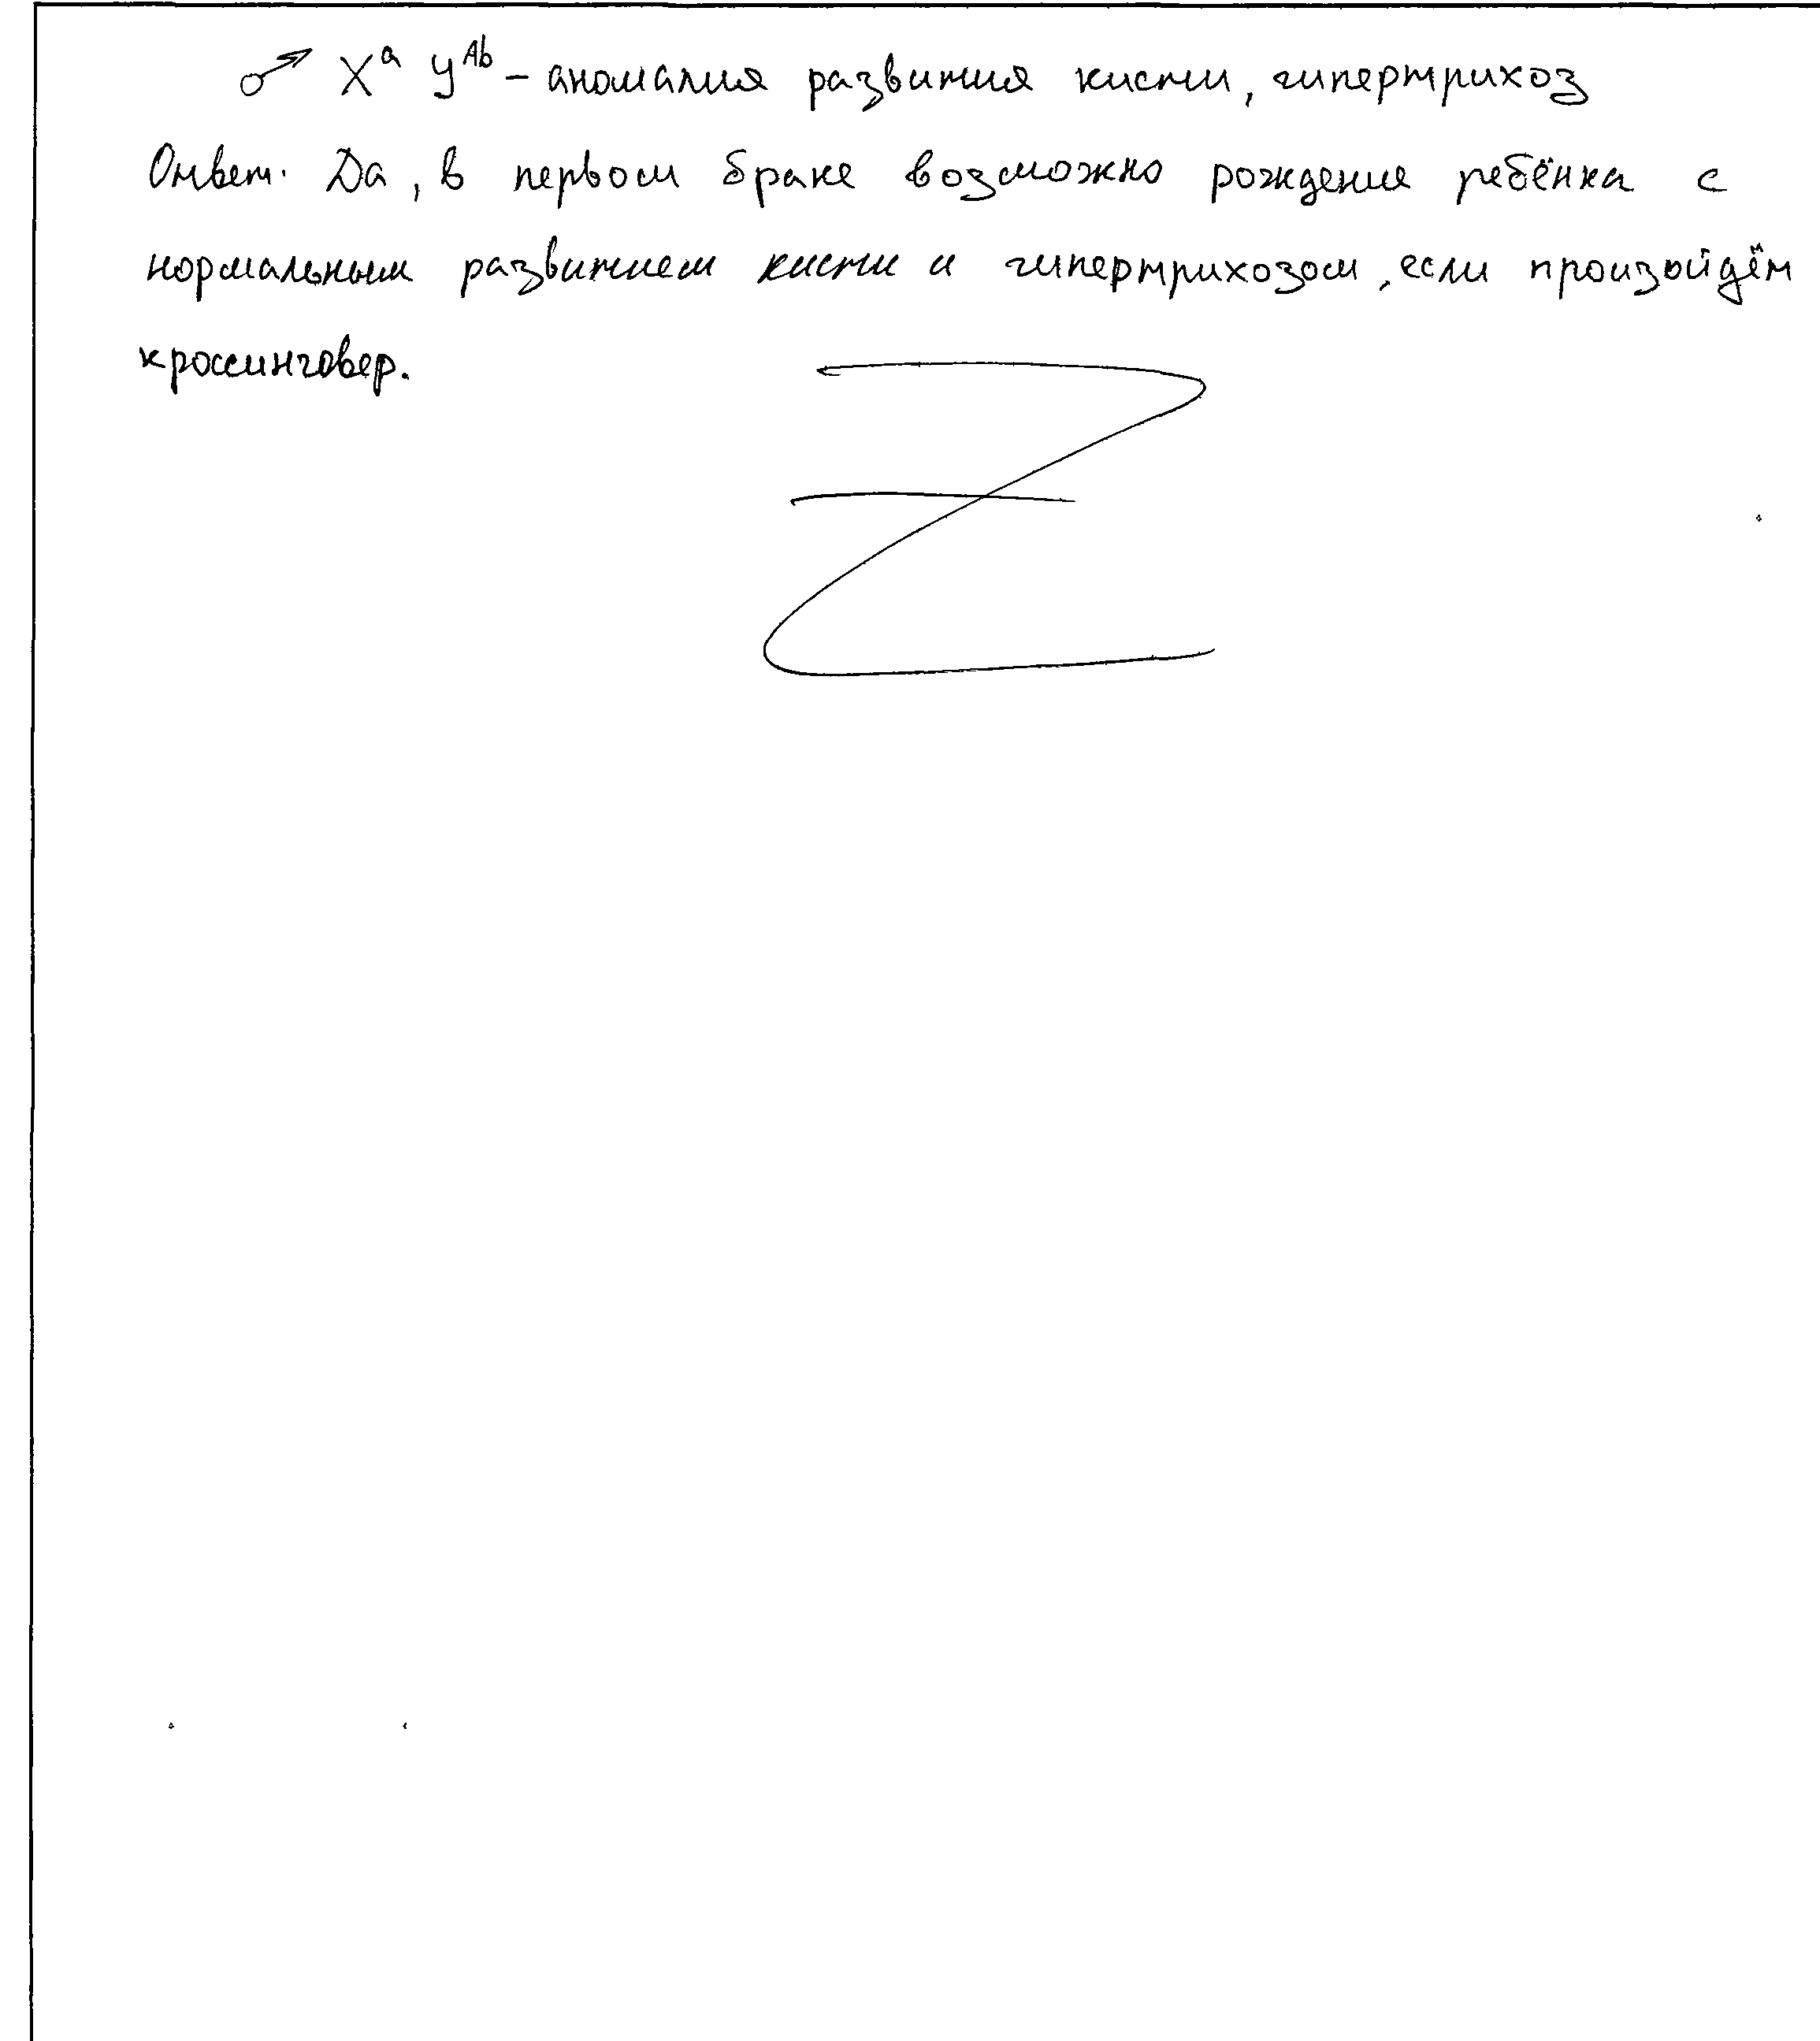 ♂ Xᵃ Yᴬᵇ – аномалия развития кисти, гипертрихоз
Ответ. Да, в первом браке возможно рождение ребёнка с
нормальным развитием кисти и гипертрихозом, если произойдёт
кроссинговер.